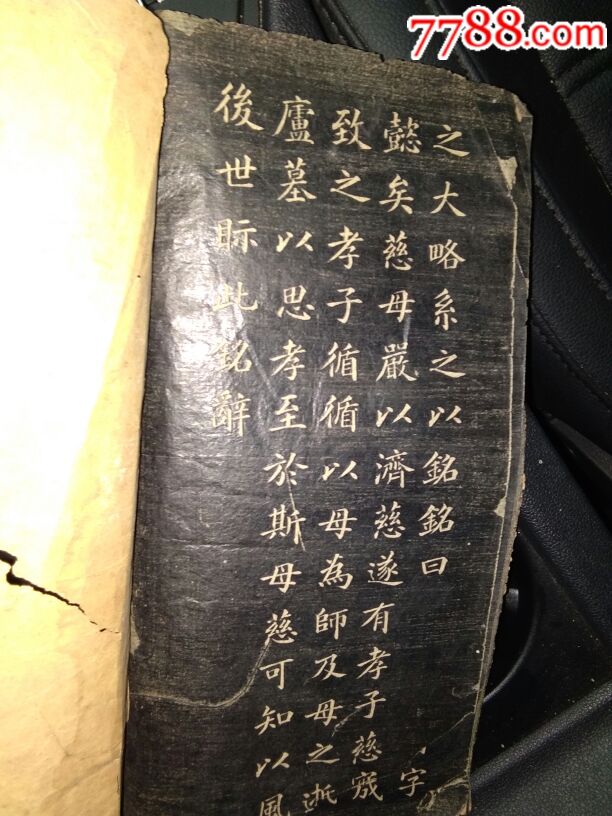 7788.com
之大略系之以銘銘曰
字
懿矣慈母嚴以濟慈遂有孝子慈寔
致之孝子循循以母為師及母之逝
廬墓以思孝至於斯母慈可知以風
後世眎此銘辭